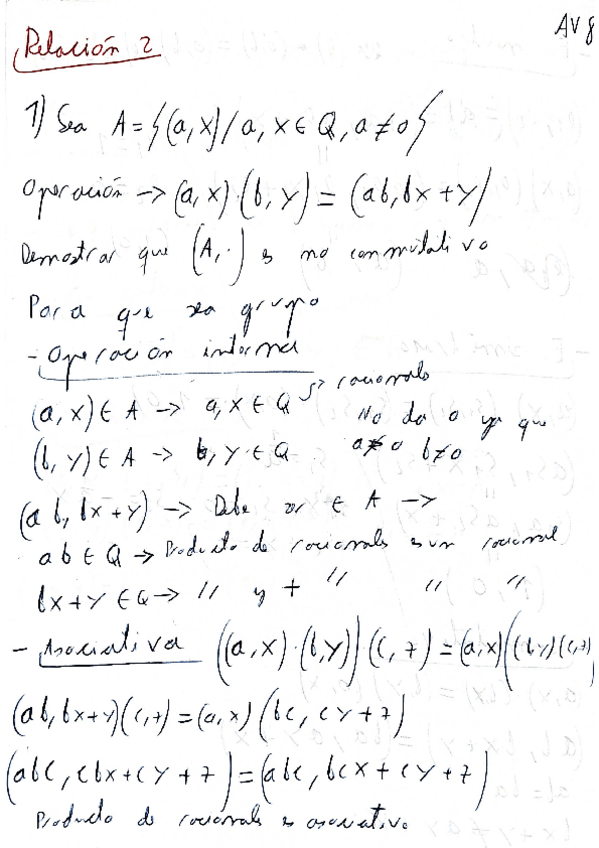 AV 8
Relación 2
1) Sea A = {(a, x) / a, x ∈ Q, a ≠ 0}
Operación → (a, x)·(b, y) = (ab, bx + y)
Demostrar que (A, ·) es no conmutativo
Para que sea grupo
- Operación interna
(a, x) ∈ A → a, x ∈ Q → racionales
(b, y) ∈ A → b, y ∈ Q
No da 0 ya que
a ≠ 0 b ≠ 0
(ab, bx + y) → Debe ser ∈ A →
ab ∈ Q → Producto de racionales es un racional
bx + y ∈ Q → // y + // // //
- Asociativa ((a, x)·(b, y))(c, z) = (a, x)((b, y)(c, z))
(ab, bx + y)(c, z) = (a, x)(bc, cy + z)
(abc, cbx + cy + z) = (abc, bcx + cy + z)
Producto de racionales es asociativo